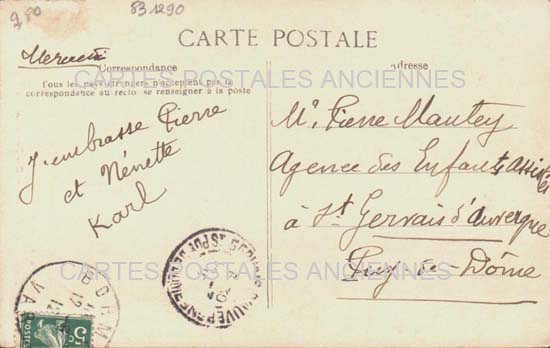 280
831290
CARTE POSTALE
Mercredi
Correspondance
Adresse
CARTES POSTALES ANCIENNES
Tous les pays étrangers n'acceptent pas la
correspondance au recto (se renseigner à la poste
J'embrasse Pierre
et Nénette
Karl
Mr Pierre Mautey
Agence des Enfants Assistés
à St Gervais d'Auvergne
Puy-de-Dôme
CARTES POSTALES ANCIENNES
VAR
5c
POSTES